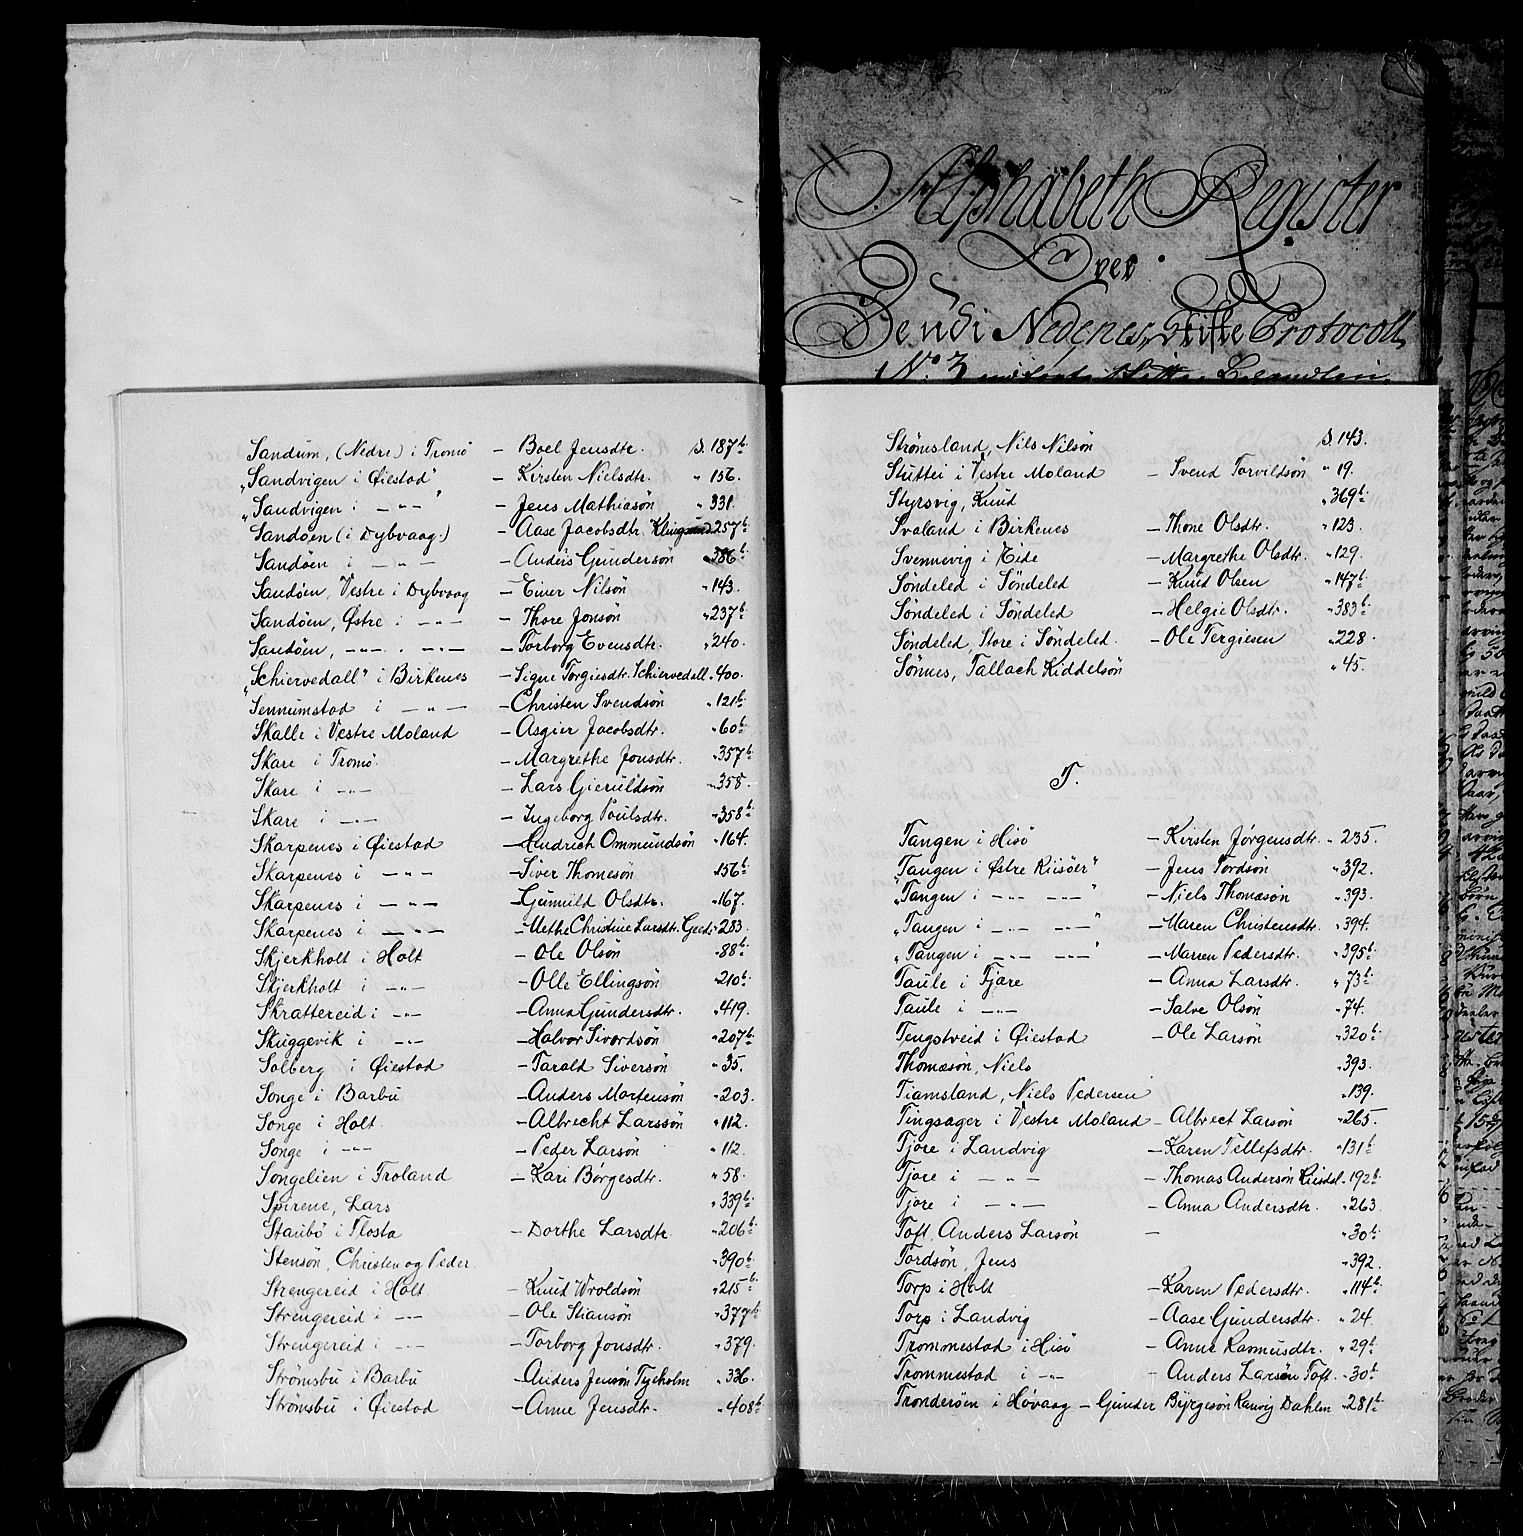 Alphabeth Register
Over
Bendt Nedenes, Skifte Protocoll
No. 3
Sandum, (Nedre) i Tromö — Boel Jensdtr. S. 187b.
"Sandvigen i Øiestad" — Kirsten Nielsdtr. " 156.
"Sandvigen i — " — " — Jens Mathiasön " 331.
Sandöen (i Dybvaag.) — Aase Jacobsdtr. " 257b.
Sandöen i — " — — Anders Gundersön " 386b.
Sandöen, Vestre i Dybvaag — Einer Nilsön " 143.
Sandöen, Østre i — " — — Thore Jonsön " 237b.
Sandöen, — " — . — " — — Torborg Evensdtr. " 240.
"Schiervedall" i Birkenes — Signe Torgiesdtr. Schiervedall " 400.
Sennumstad i — " — — Christen Svendsön " 121b.
Skalle i Vestre Moland — Asgier Jacobsdtr. " 60b.
Skare i Tromö. — Margrethe Jonsdtr. " 357b.
Skare i — " — — Lars Gieruldsön " 358.
Skare i — " — — Ingeborg Poulsdtr. " 358b.
Skarpenes i Øiestad — Hendrich Ommundsön " 164.
Skarpenes i — " — — Siver Thomesön " 156b.
Skarpenes i — " — — Gunnild Olsdtr. " 167.
Skarpenes i — " — — Methe Christine Larsdtr. " 283.
Skjerkholt i Holt — Ole Olsön " 88b.
Skjerkholt i — " — — Olle Ellingsön " 210b.
Skrattereid i — " — — Anna Gundersdtr. " 419.
Skuggevik i — " — — Halvor Sivordsön " 207b.
Solberg i Øiestad — Tarald Siversön " 35.
Songe i Barbu — Anders Mortensön " 203.
Songe i Holt. — Albrecht Larssön " 112.
Songe i — " — — Peder Larsön " 112.
Songelien i Froland — Kari Börgesdtr. " 58.
Spirene, Lars " 339b.
Staubö i Flosta — Dorthe Larsdtr. " 206b.
Stensön, Christen og Peder. " 390b.
Strengereid i Holt — Knud Wroldsön " 215b.
Strengereid i — " — — Ole Stiansön " 377b.
Strengereid i — " — — Torborg Jonsdtr. " 379.
Strömsbu i Barbu — Anders Jensön Tycholm " 336.
Strömsbu i Øiestad — Anne Jensdtr. " 408b.
Strömsland, Nils Nilsön S. 143.
Stuttei i Vestre Moland — Svend Torvildsön " 19.
Styrsvig, Knud " 369b.
Svaland i Birkenes — Thone Olsdtr. " 123.
Svennevig i Eide — Margrethe Olsdtr. " 129.
Söndeled i Söndeled — Knud Olsen " 147b.
Söndeled i Söndeled — Helgie Olsdtr. " 383b.
Söndeled, Store i Söndeled. — Ole Tergiesen " 228.
Sönnes, Tallach Kiddelsön " 45.
T.
Tangen i Hisö — Kirsten Jörgensdtr. " 235.
"Tangen i Østre Riisöer" — Jens Tordsön " 392.
"Tangen i — " — — " — " — Niels Thomasön " 393.
"Tangen i — " — — " — " — Maren Christensdtr. " 394.
"Tangen i — " — — " — " — Maren Pedersdtr. " 395b.
Taule i Fjære — Anna Larsdtr. " 73b.
Taule i — " — — Salve Olsön " 74.
Tengstveid i Øiestad — Ole Larsön " 320b.
Thomasön, Niels " 393.
Tiamsland, Niels Pedersen " 139.
Tingsager i Vestre Moland — Albrect Larsön " 265.
Tjore i Landvig — Karen Tellefsdtr. " 131b.
Tjore i — " — — Thomas Andersön " 192b.
Tjore i — " — — Anna Andersdtr. " 263.
Toft, Anders Larsön — " 30b.
Tordsön, Jens " 392.
Torp i Holt — Karen Pedersdtr. " 114b.
Torp i Landvig — Aase Gundersdtr. " 24.
Trommestad i Hisö — Anne Rasmusdtr. " 29b.
Trommestad i — " — — Anders Larsön Toft. " 30b.
Tronderöen i Hövaag — Gunder Byrgesön Ranvig Dahlen " 281b.